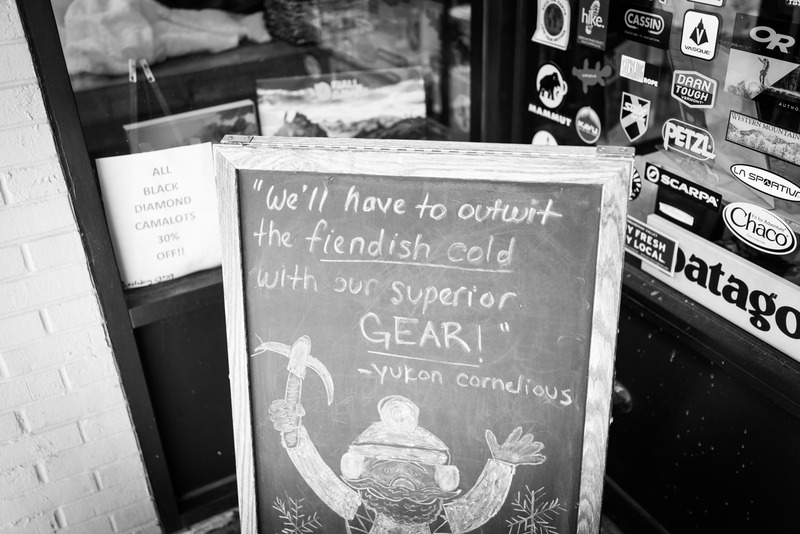 ALL
BLACK
DIAMOND
CAMALOTS
30%
OFF!!
"We'll have to outwit
the fiendish cold
with our superior
GEAR!"
-yukon cornelious
hike.
CASSIN
VASQUE
OR
MAMMUT
DARN
TOUGH
VERMONT
PETZL
WESTERN MOUNTAIN
SCARPA
LA SPORTIVA
Chaco
FRESH
LOCAL
patago